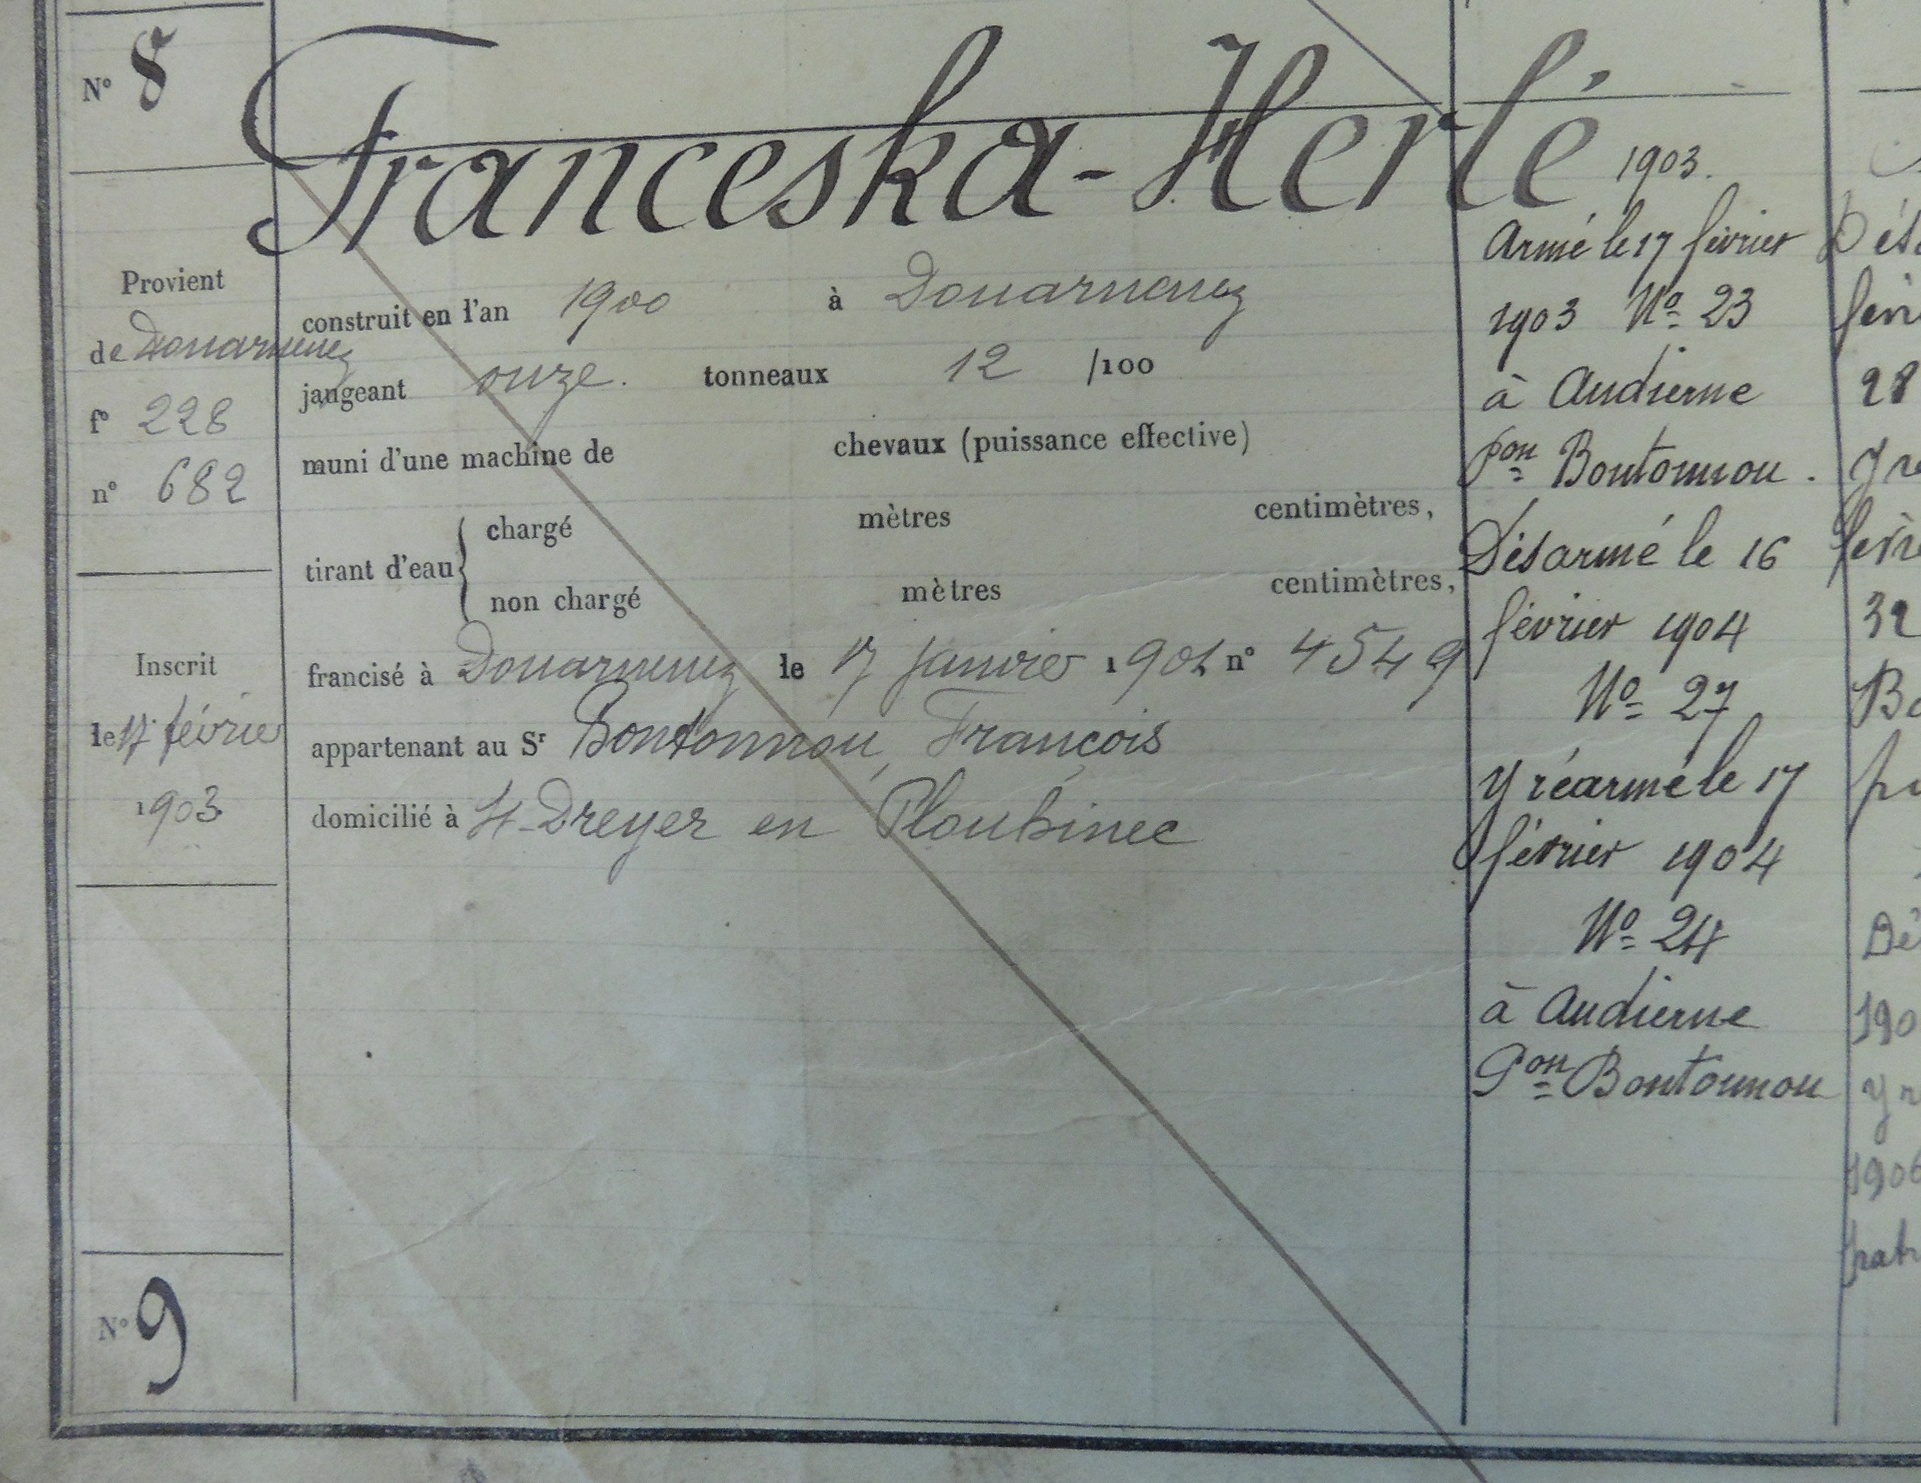 N° 8
Franceska-Herlé
Provient
de Douarnenez
f° 228
n° 682
Inscrit
le 17 février
1903
construit en l'an 1900 à Douarnenez
jaugeant onze. tonneaux 12 /100
muni d'une machine de chevaux (puissance effective)
tirant d'eau { chargé mètres centimètres,
non chargé mètres centimètres,
francisé à Douarnenez le 17 janvier 1901 n° 4549
appartenant au Sr Bontonnou, François
domicilié à St-Dreyer en Plouhinec
1903.
Armé le 17 février
1903 No 23
à Audierne
Pon Bontonnou.
Désarmé le 16
février 1904
No 27
Y réarmé le 17
février 1904
No 24
à Audierne
Pon Bontonnou
28
32
190
1906
N° 9